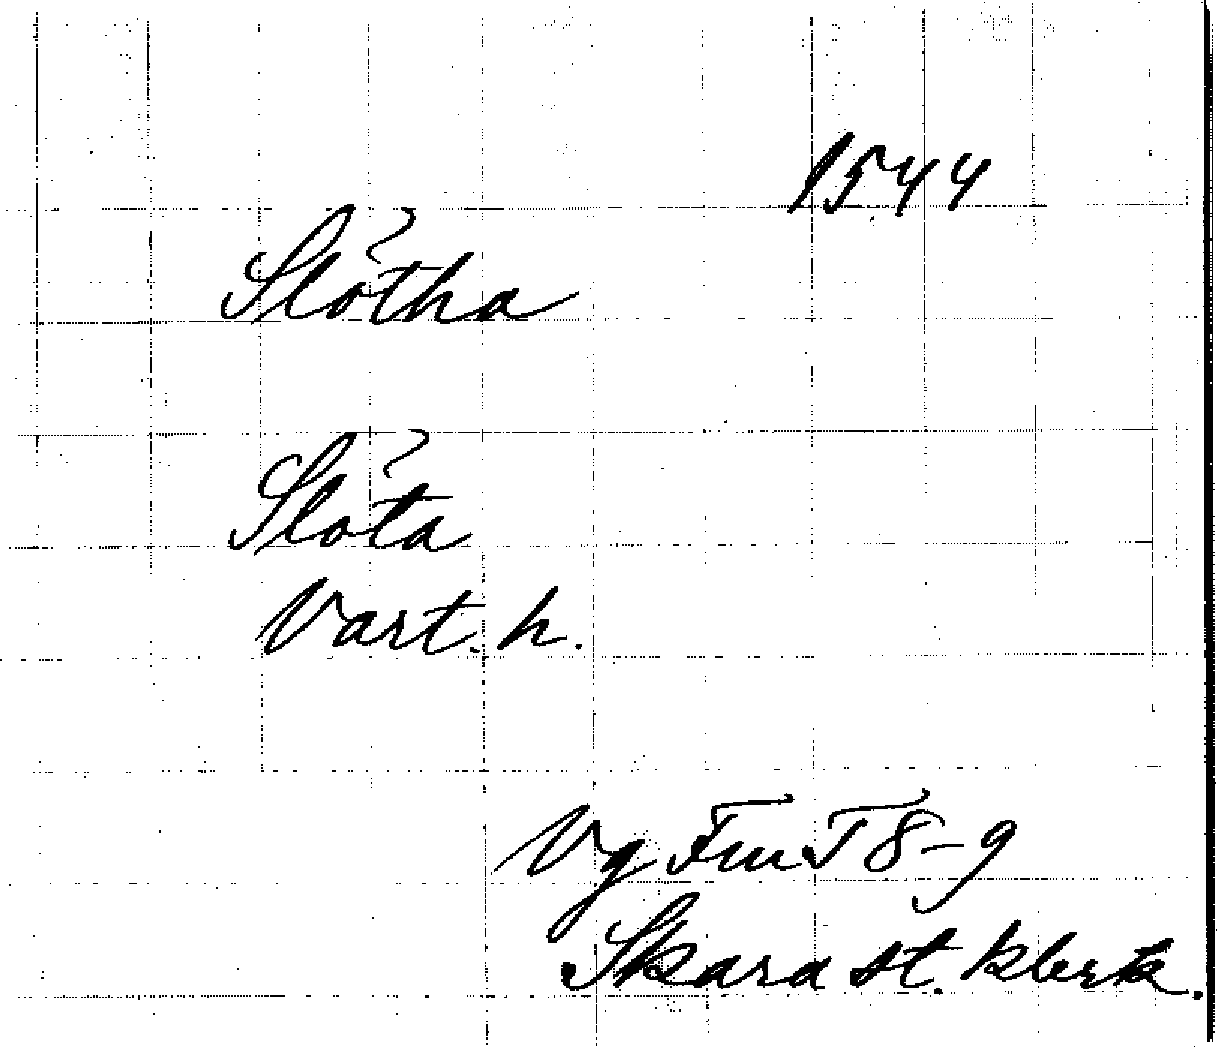 1544
Slótha
Slóta
Vart. h.
Vg FmT 8-9
Skara st. klerk.